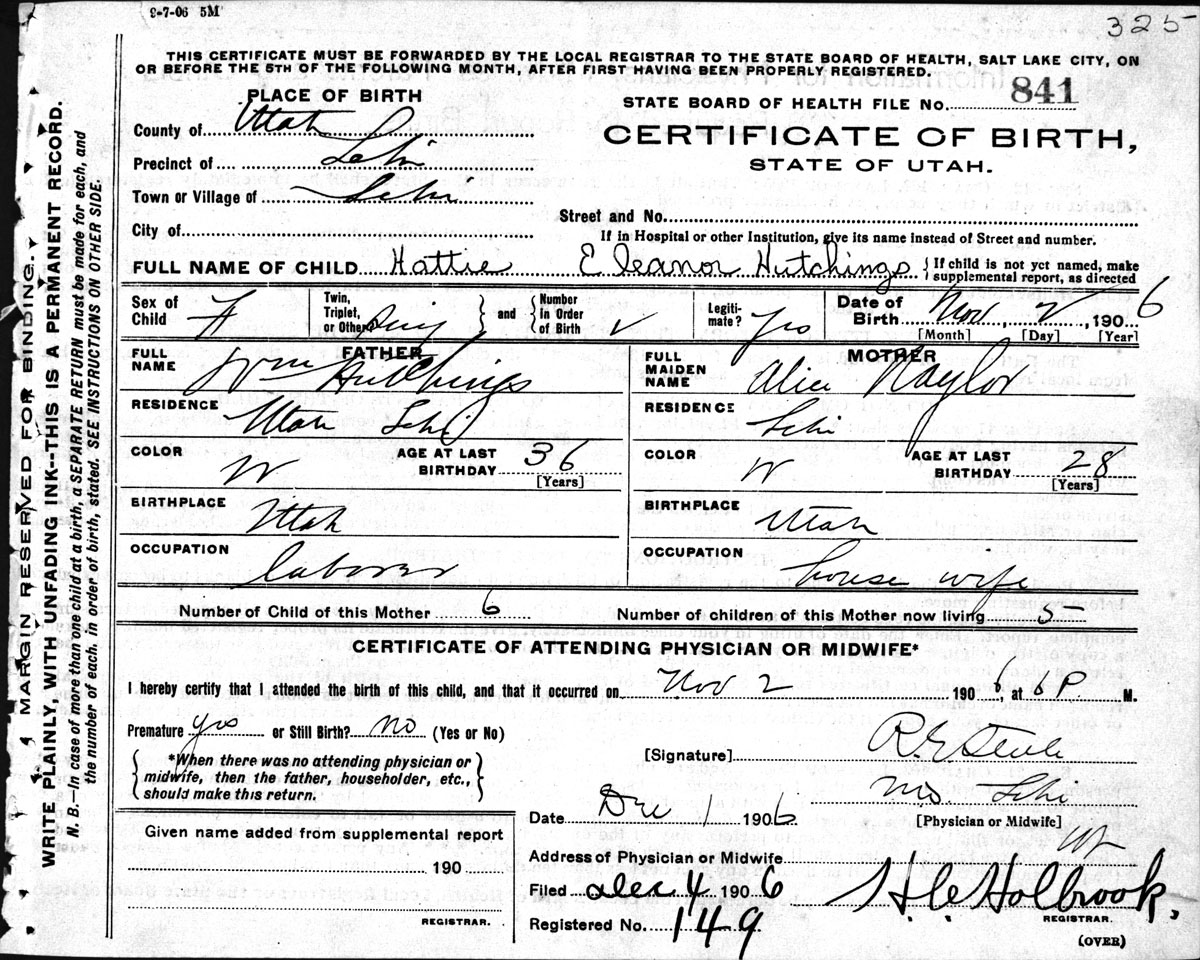 9-7-06 5M
325
THIS CERTIFICATE MUST BE FORWARDED BY THE LOCAL REGISTRAR TO THE STATE BOARD OF HEALTH, SALT LAKE CITY, ON
OR BEFORE THE 5TH OF THE FOLLOWING MONTH, AFTER FIRST HAVING BEEN PROPERLY REGISTERED.
MARGIN RESERVED FOR BINDING.
WRITE PLAINLY, WITH UNFADING INK--THIS IS A PERMANENT RECORD.
N. B.—In case of more than one child at a birth, a SEPARATE RETURN must be made for each, and
the number of each, in order of birth, stated. SEE INSTRUCTIONS ON OTHER SIDE.
PLACE OF BIRTH
County of Utah
Precinct of Lehi
Town or Village of Lehi
City of
STATE BOARD OF HEALTH FILE No. 841
CERTIFICATE OF BIRTH,
STATE OF UTAH.
Street and No.
If in Hospital or other Institution, give its name instead of Street and number.
FULL NAME OF CHILD Hattie Eleanor Hutchings { If child is not yet named, make supplemental report, as directed
Sex of Child F
Twin, Triplet, or Other
and
Number in Order of Birth
Legiti-mate? yes
Date of Birth Nov 2, 1906
[Month] [Day] [Year]
FATHER
FULL NAME Wm Hutchings
RESIDENCE Utah Lehi
COLOR W AGE AT LAST BIRTHDAY 36
[Years]
BIRTHPLACE Utah
OCCUPATION laborer
MOTHER
FULL MAIDEN NAME Alice Naylor
RESIDENCE Lehi
COLOR W AGE AT LAST BIRTHDAY 28
[Years]
BIRTHPLACE Utah
OCCUPATION house wife
Number of Child of this Mother 6 Number of children of this Mother now living 5
CERTIFICATE OF ATTENDING PHYSICIAN OR MIDWIFE*
I hereby certify that I attended the birth of this child, and that it occurred on Nov 2 1906, at 8 P M.
Premature yes or Still Birth? no (Yes or No)
*When there was no attending physician or
midwife, then the father, householder, etc.,
should make this return.
[Signature] R. E. Steele
MD Lehi
[Physician or Midwife]
Date Dec 1 1906
Address of Physician or Midwife
Given name added from supplemental report
190
REGISTRAR.
Filed Dec 4 1906
H. C. Holbrook.
REGISTRAR.
Registered No. 149
(OVER)